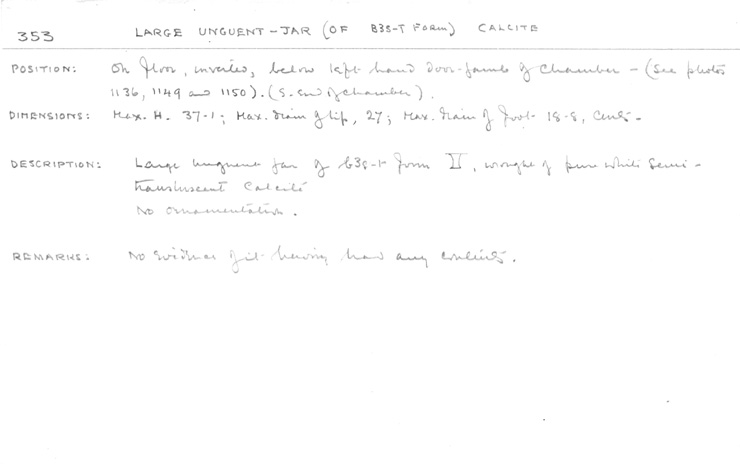 353 LARGE UNGUENT-JAR (OF B3S-T FORM) CALCITE
POSITION: On floor, inverted, below left-hand door-jamb of Chamber - (See photos
1136, 1149 and 1150). (S. end of chamber).
DIMENSIONS: Max. H. 37.1; Max. diam of lip, 27; Max. diam of foot 18.8, cents.
DESCRIPTION: Large unguent jar of b3s-t form II, wrought of pure white semi-
transluscent calcite
No ornamentation.
REMARKS: No evidence of it having had any contents.